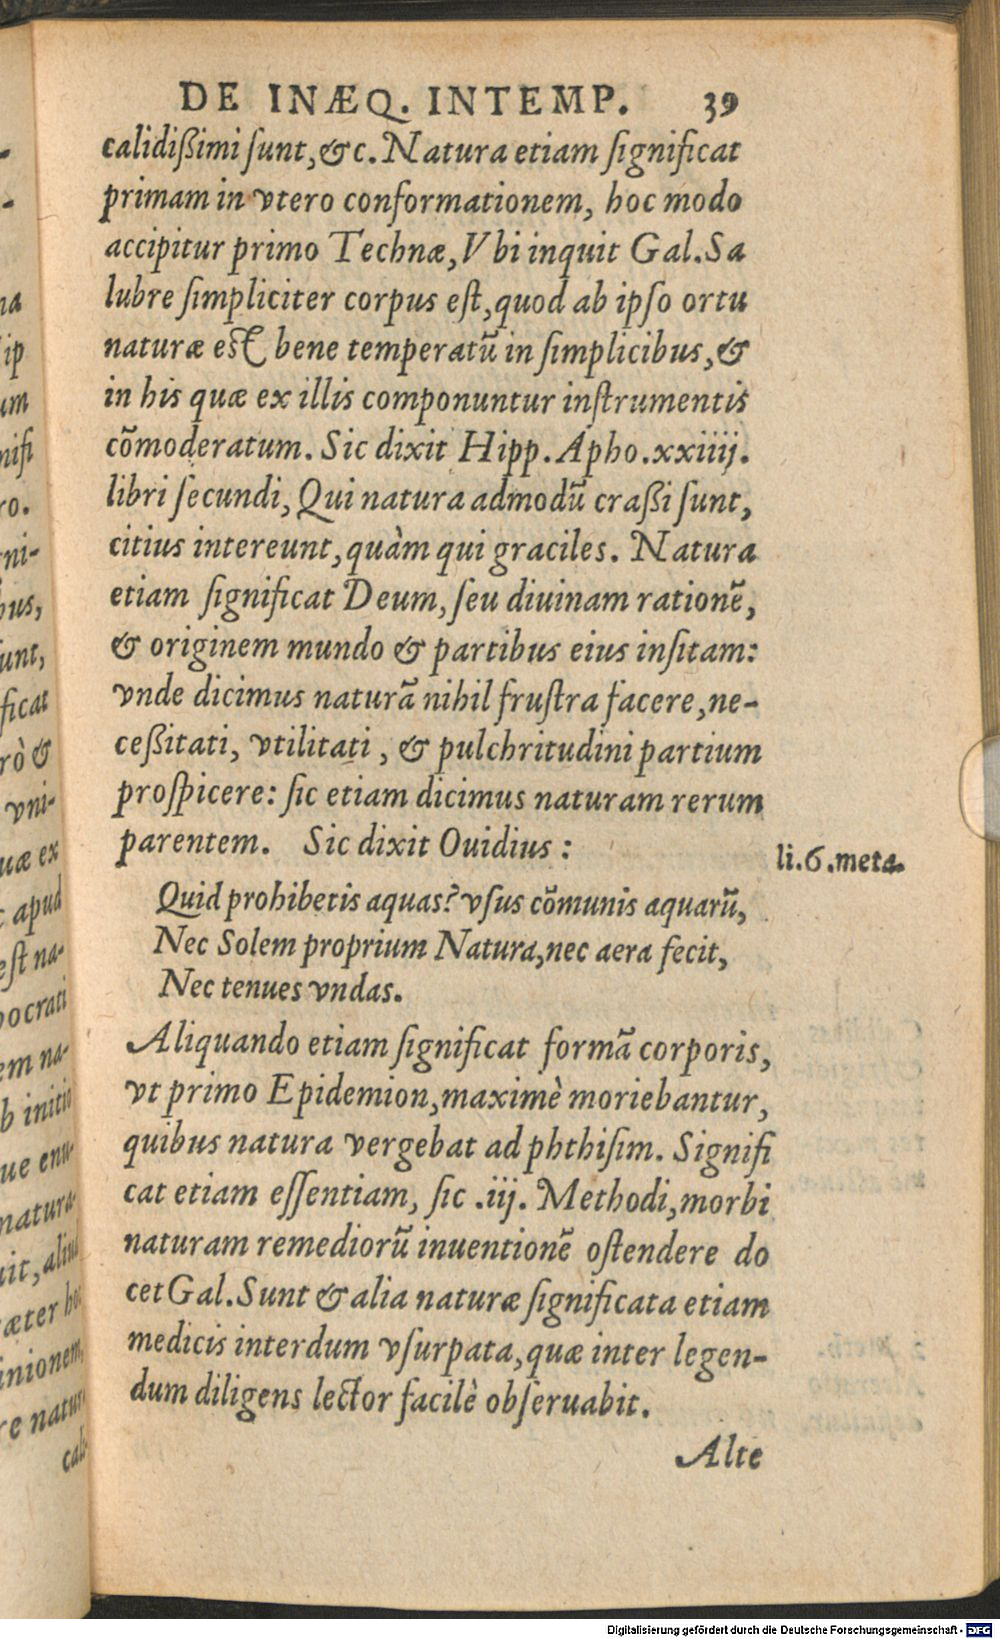 DE INÆQ. INTEMP. 39
calidißimi ſunt, & c. Natura etiam ſignificat
primam in vtero conformationem, hoc modo
accipitur primo Technæ, Vbi inquit Gal. Sa
lubre ſimpliciter corpus eſt, quod ab ipſo ortu
naturæ est bene temperatũ in ſimplicibus, &
in his quæ ex illis componuntur inſtrumentis
cõmoderatum. Sic dixit Hipp. Apho. xxiiij.
libri ſecundi, Qui natura admodũ craßi ſunt,
citius intereunt, quàm qui graciles. Natura
etiam ſignificat Deum, ſeu diuinam rationẽ,
& originem mundo & partibus eius inſitam:
vnde dicimus naturã nihil fruſtra facere, ne-
ceßitati, vtilitati, & pulchritudini partium
proſpicere: ſic etiam dicimus naturam rerum
parentem. Sic dixit Ouidius:
li. 6. meta.
Quid prohibetis aquas? vſus cõmunis aquarũ,
Nec Solem proprium Natura, nec aera fecit,
Nec tenues vndas.
Aliquando etiam ſignificat formã corporis,
vt primo Epidemion, maximè moriebantur,
quibus natura vergebat ad phthiſim. Signifi
cat etiam eſſentiam, ſic .iij. Methodi, morbi
naturam remediorũ inuentionẽ oſtendere do
cet Gal. Sunt & alia naturæ ſignificata etiam
medicis interdum vſurpata, quæ inter legen-
dum diligens lector facilè obſeruabit.
Alte
Digitalisierung gefördert durch die Deutsche Forschungsgemeinschaft - DFG